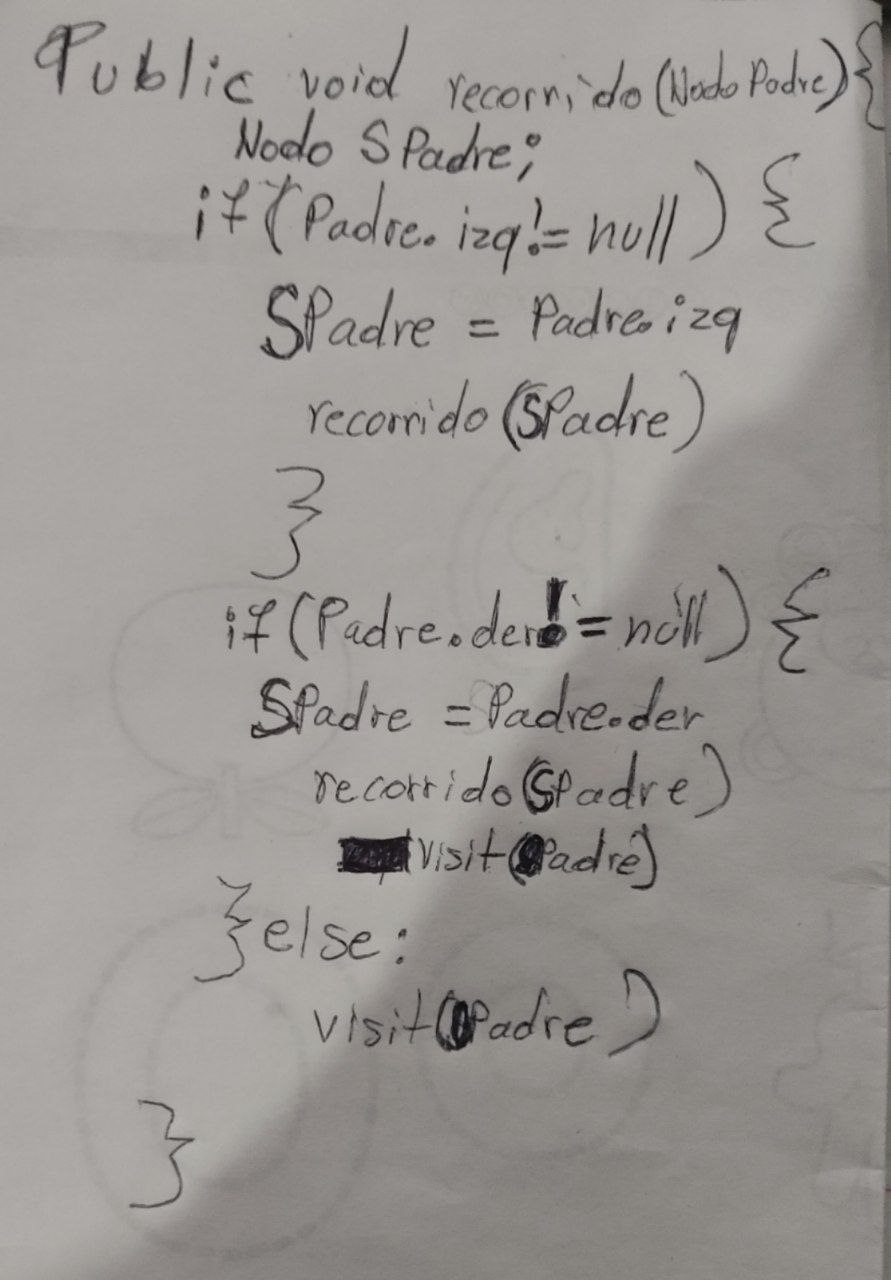 Public void recorrido(Nodo Padre){
Nodo SPadre;
if(Padre.izq!=null){
SPadre = Padre.izq
recorrido(SPadre)
}
if(Padre.der!=null){
SPadre = Padre.der
recorrido(SPadre)
visit(Padre)
}else:
visit(Padre)
}